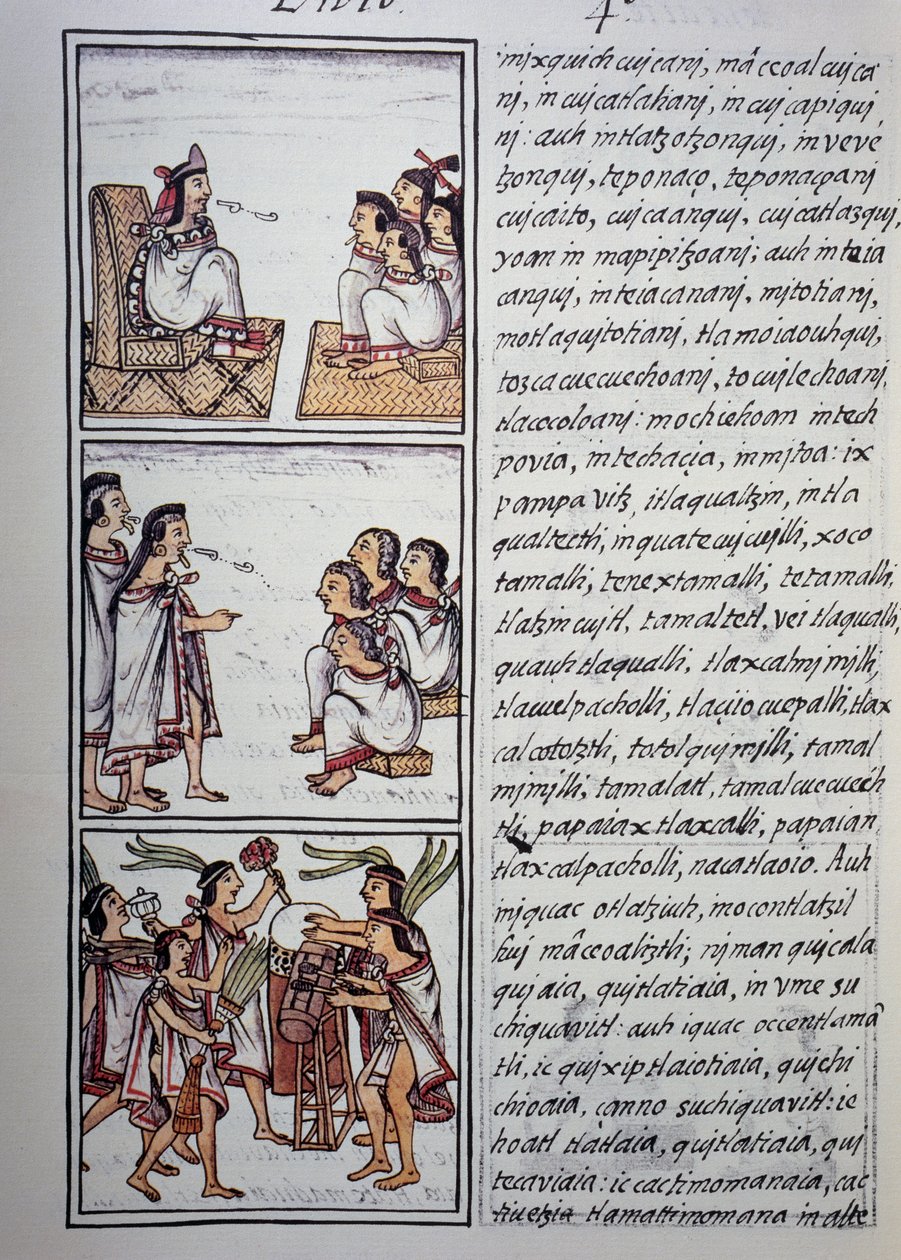 Libro. 4º
imixquich cujcanj, mâceoal cujca
nj, in cujcatlalianj, in cujcapiquj
nj: auh intlatzotzonquj, in vevé
tzonquj, teponaço, teponaçoanj
cujcaito, cujcaanquj, cujcatlazquj,
yoan in mapipitzoanj; auh in teia
canquj, in teiacananj, mjtotianj,
motlaqujtotianj, tlamoiaouhquj,
tozcacuecuechoanj, tocujlechoanj,
tlacocoloanj: mochiehoan intech
povia, intechaçia, inmjtoa: ix
pampa vitz, itlaqualtzin, intla
qualtectli, inquatecujcujlli, xoco
tamalli, tenextamalli, tetamalli,
tlatzincujtl, tamaltetl, vei tlaqualli,
quauhtlaqualli, tlaxcalmjmjlli,
tlavelpacholli, tlaçiiocuepalli, tlax
calcototztli, totolqujmjlli, tamal
mjmjlli, tamalatl, tamalcuecuech
tli, papaiax tlaxcalli, papaian
tlaxcalpacholli, nacatlaoio. Auh
injquac otlatziuh, inocontlatzil
huj mâceoaliztli; njman qujcala
qujaia, qujtlatiaia, in vme su
chiquavitl: auh iquac occentlamâ
tli, ic quixiptlaiotiaia, qujchi
chioaia, çanno suchiquavitl: ie
hoatl tlatlaia, qujtlatiaia, quj
tecaviaia: ic cactimomanaia, cac
tivetzia tlamattimomana in alte